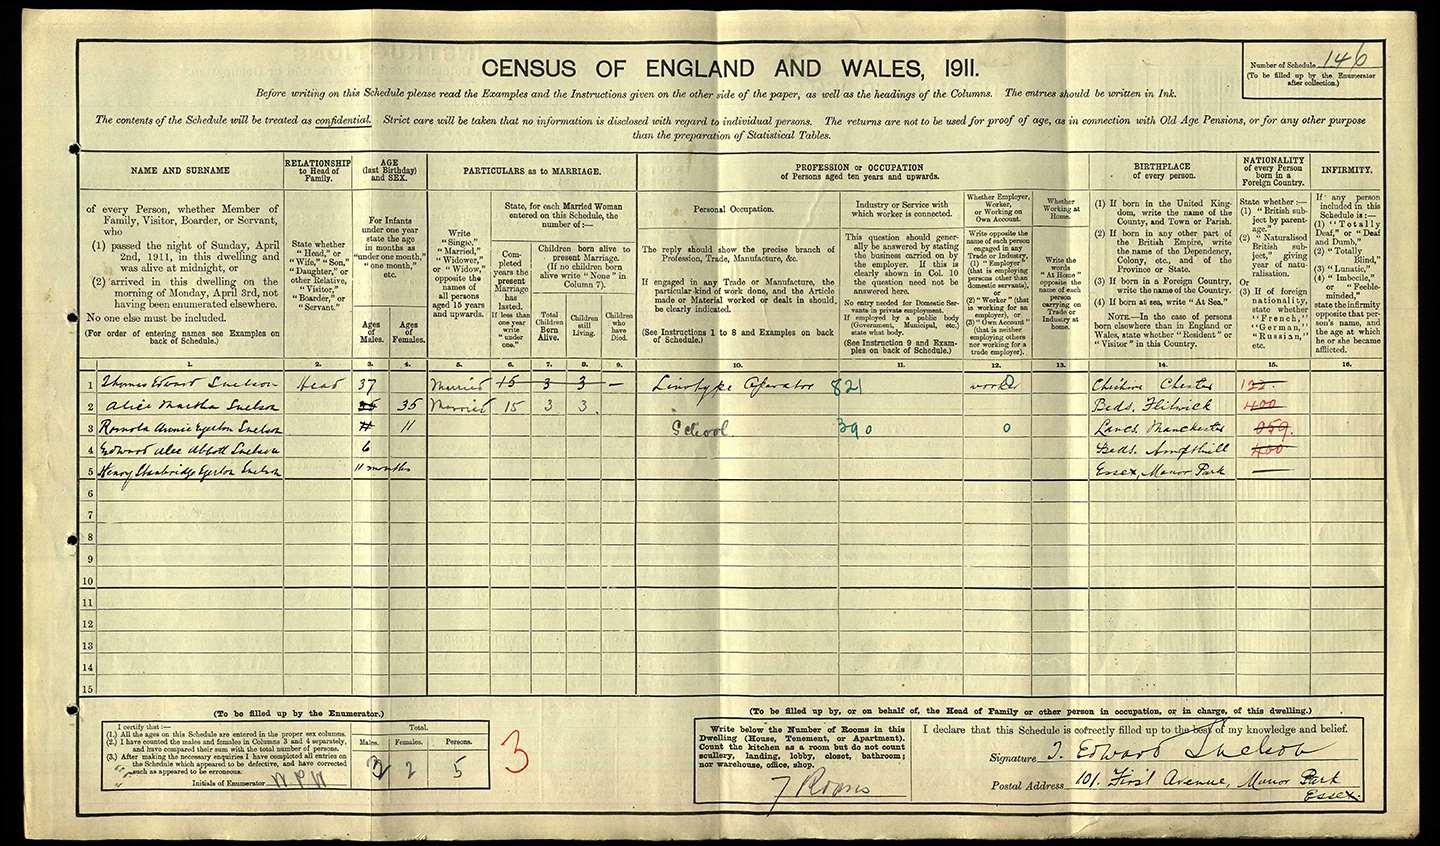 CENSUS OF ENGLAND AND WALES, 1911.
Number of Schedule 146
(To be filled up by the Enumerator
after collection.)
Before writing on this Schedule please read the Examples and the Instructions given on the other side of the paper, as well as the headings of the Columns. The entries should be written in Ink.
The contents of the Schedule will be treated as confidential. Strict care will be taken that no information is disclosed with regard to individual persons. The returns are not to be used for proof of age, as in connection with Old Age Pensions, or for any other purpose
than the preparation of Statistical Tables.
NAME AND SURNAME
of every Person, whether Member of
Family, Visitor, Boarder, or Servant,
who
(1) passed the night of Sunday, April
2nd, 1911, in this dwelling and
was alive at midnight, or
(2) arrived in this dwelling on the
morning of Monday, April 3rd, not
having been enumerated elsewhere.
No one else must be included.
(For order of entering names see Examples on
back of Schedule.)
RELATIONSHIP
to Head of
Family.
State whether
"Head," or
"Wife," "Son,"
"Daughter," or
other Relative,
"Visitor,"
"Boarder," or
"Servant."
AGE
(last Birthday)
and SEX.
For Infants
under one year
state the age
in months as
"under one month,"
"one month,"
etc.
Ages
of
Males.
Ages
of
Females.
PARTICULARS as to MARRIAGE.
Write
"Single,"
"Married,"
"Widower,"
or "Widow,"
opposite the
names of
all persons
aged 15 years
and upwards.
State, for each Married Woman
entered on this Schedule, the
number of:—
Completed
years the
present
Marriage
has
lasted.
If less than
one year
write
"under
one."
Children born alive to
present Marriage.
(If no children born
alive write "None" in
Column 7).
Total
Children
Born
Alive.
Children
still
Living.
Children
who
have
Died.
PROFESSION or OCCUPATION
of Persons aged ten years and upwards.
Personal Occupation.
The reply should show the precise branch of
Profession, Trade, Manufacture, &c.
If engaged in any Trade or Manufacture, the
particular kind of work done, and the Article
made or Material worked or dealt in should,
be clearly indicated.
(See Instructions 1 to 8 and Examples on back
of Schedule.)
Industry or Service with
which worker is connected.
This question should gener-
ally be answered by stating
the business carried on by
the employer. If this is
clearly shown in Col. 10
the question need not be
answered here.
No entry needed for Domestic Ser-
vants in private employment.
If employed by a public body
(Government, Municipal, etc.)
state what body.
(See Instruction 9 and Exam-
ples on back of Schedule.)
Whether Employer,
Worker,
or Working on
Own Account.
Write opposite the
name of each person
engaged in any
Trade or Industry,
(1) "Employer"
(that is employing
persons other than
domestic servants),
or
(2) "Worker" (that
is working for an
employer), or
(3) "Own Account"
(that is neither
employing others
nor working for a
trade employer).
Whether
Working at
Home.
Write the
words
"At Home"
opposite the
name of each
person
carrying on
Trade or
Industry at
home.
BIRTHPLACE
of every person.
(1) If born in the United King-
dom, write the name of the
County, and Town or Parish.
(2) If born in any other part of
the British Empire, write
the name of the Dependency,
Colony, etc., and of the
Province or State.
(3) If born in a Foreign Country,
write the name of the Country.
(4) If born at sea, write "At Sea."
NOTE.—In the case of persons
born elsewhere than in England or
Wales, state whether "Resident" or
"Visitor" in this Country.
NATIONALITY
of every Person
born in a
Foreign Country.
State whether:—
(1) "British sub-
ject by parent-
age."
(2) "Naturalised
British sub-
ject," giving
year of natu-
ralisation.
Or
(3) If of foreign
nationality,
state whether
"French,"
"German,"
"Russian,"
etc.
INFIRMITY.
If any person
included in this
Schedule is:—
(1) "Totally
Deaf," or "Deaf
and Dumb,"
(2) "Totally
Blind,"
(3) "Lunatic,"
(4) "Imbecile,"
or "Feeble-
minded,"
state the infirmity
opposite that per-
son's name, and
the age at which
he or she became
afflicted.
1. 2. 3. 4. 5. 6. 7. 8. 9. 10. 11. 12. 13. 14. 15. 16.
1 Thomas Edward Snelson Head 37 Married 15 3 3 — Linotype Operator 821 worker Cheshire Chester 122.
2 Alice Martha Snelson 35 35 Married 15 3 3 Beds. Flitwick 400
3 Romola Annie Egerton Snelson 11 11 School 390 0 Lancs. Manchester 059.
4 Edward Alec Abbott Snelson 6 Beds. Ampthill 400
5 Henry Stanbridge Egerton Snelson 11 months Essex, Manor Park —
6
7
8
9
10
11
12
13
14
15
(To be filled up by the Enumerator.)
I certify that:—
(1.) All the ages on this Schedule are entered in the proper sex columns.
(2.) I have counted the males and females in Columns 3 and 4 separately,
and have compared their sum with the total number of persons.
(3.) After making the necessary enquiries I have completed all entries on
the Schedule which appeared to be defective, and have corrected
such as appeared to be erroneous.
Initials of Enumerator
Total.
Males. Females. Persons.
3 2 5
3
(To be filled up by, or on behalf of, the Head of Family or other person in occupation, or in charge, of this dwelling.)
Write below the Number of Rooms in this
Dwelling (House, Tenement, or Apartment).
Count the kitchen as a room but do not count
scullery, landing, lobby, closet, bathroom;
nor warehouse, office, shop.
7 Rooms
I declare that this Schedule is correctly filled up to the best of my knowledge and belief.
Signature T. Edward Snelson
Postal Address 101. First Avenue, Manor Park
Essex.